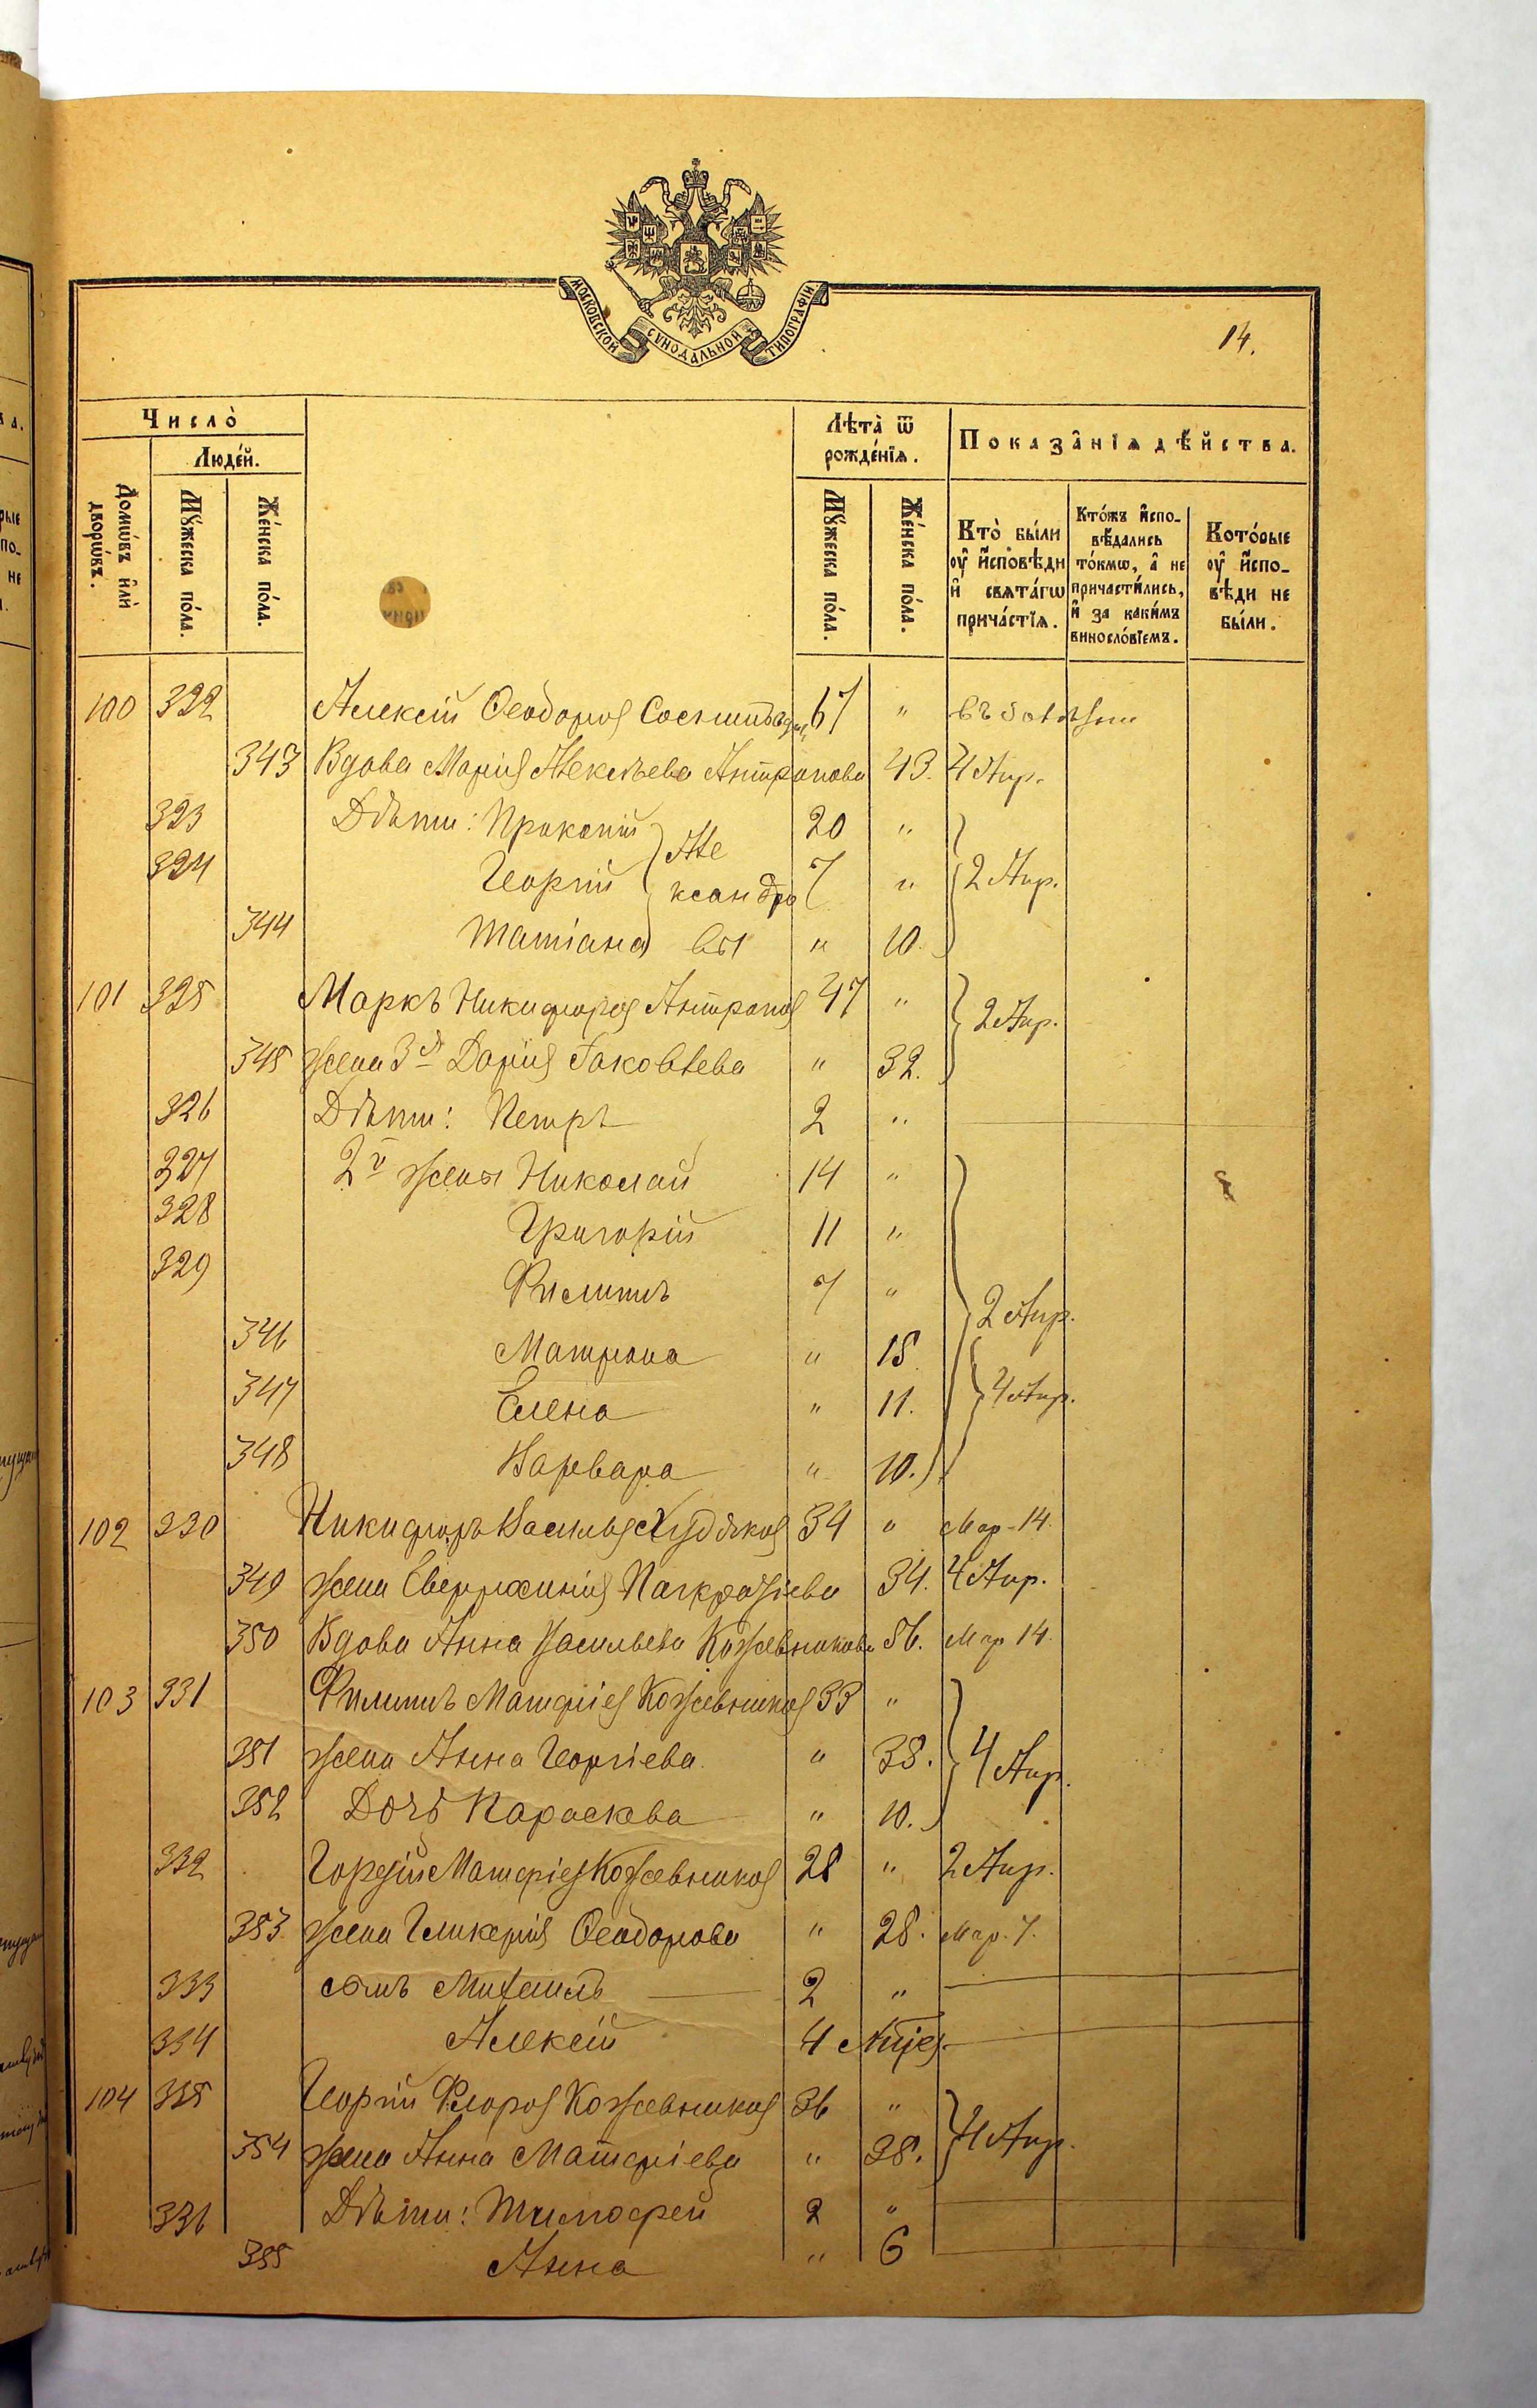 МОСКОВСКОЙ СУНОДАЛЬНОЙ ТИПОГРАФІИ
14.
Число̀
Люде́й.
Домѡ́въ и҆лѝ дворѡ́въ.
Мꙋ́жеска по́ла.
Же́нска по́ла.
Лѣта̀ ѿ рожде́нїѧ.
Мꙋ́жеска по́ла.
Же́нска по́ла.
Показа̂нїѧ дѣ́йства.
Кто̀ бы́ли оу҆ и҆́сповѣди и҆ свѧта́гѡ прича́стїѧ.
Кто́жъ и҆спо-вѣ́дались то́кмѡ, а҆ не причасти́лись, и҆ за каки́мъ винослóвїемъ.
Кото́рые оу҆ и҆́спо-вѣди не бы́ли.
100 322 Алексій Ѳеодоров 67 "
343 Вдова Марія Алексѣева Антропова 43. 4 Апр.
323 Дѣти: Прокопій 20 "
324 Георгій 7 " 2 Апр.
Александровы
344 Татіана " 10.
101 325 Маркъ Никифоров Антропов 47 " 2 Апр.
345 жена 3я Дарія Іаковлева " 32.
326 Дѣти: Петръ 2 "
327 2й жены Николай 14 "
328 Григорій 11 "
329 Филиппъ 7 " 2 Апр.
346 Матрона " 18.
347 Елена " 11. 4 Апр.
348 Варвара " 10.
102 330 Никифоръ Васильев Худяков 34 " Мар. 14.
349 жена Евфросинія Панкратіева 34. 4 Апр.
350 Вдова Анна Васильева Кожевникова 56. Мар. 14.
103 331 Филиппъ Матфіев Кожевников 33 "
351 жена Анна Георгіева " 38. 4 Апр.
352 Дочь Параскева " 10.
332 Гордій Матфіев Кожевников 28 " 2 Апр.
353 жена Гликерія Ѳеодорова " 28. Мар. 7.
333 сынъ Михаилъ 2 "
334 Алексій 4
104 335 Георгій Флоров Кожевников 36 " 4 Апр.
354 жена Анна Матфіева " 38.
336 Дѣти: Тимофей 2 "
355 Анна " 6